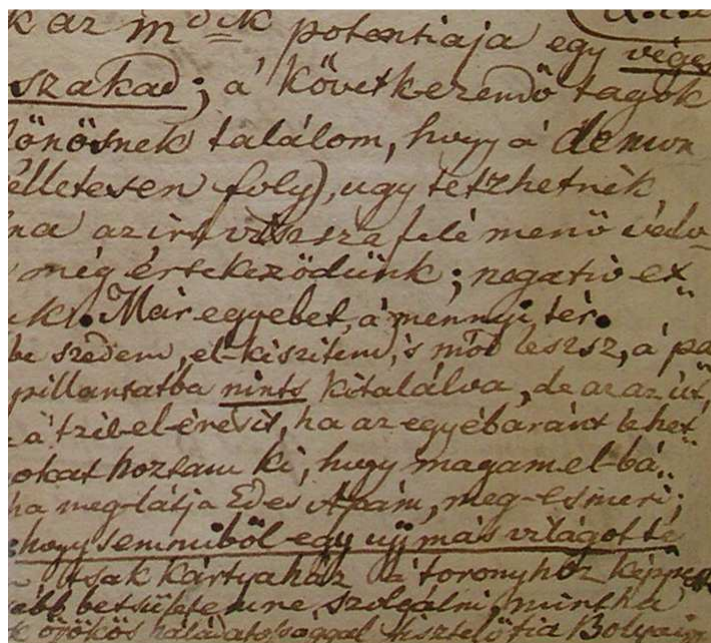 k az m dik potentiaja egy véges
szakad; a' következendő tagok
lönösnek találom, hogy a' demon
élletesen foly), ugy tetzhetnék
na az írt viszsza felé menő
még értekeződünk; negativ ex
uk. Már egyebet, a' mennyi tér.
be szedem, el-készitem, 's mód leszsz, a' pa
pillantatba nints kitalálva, de az az út,
a' tzél-el-érését, ha az egyébaránt lehet
okat hoztam ki, hogy magam el-bá
ha meg-látja Edes Apám, meg-esmeri;
: hogy semmiből egy ujj más világot te
tsak kártyaház a' toronyhoz képpest
ébb betsületemre szolgálni, mintha
örökös háládatossággal tisztelő fia Bolyai